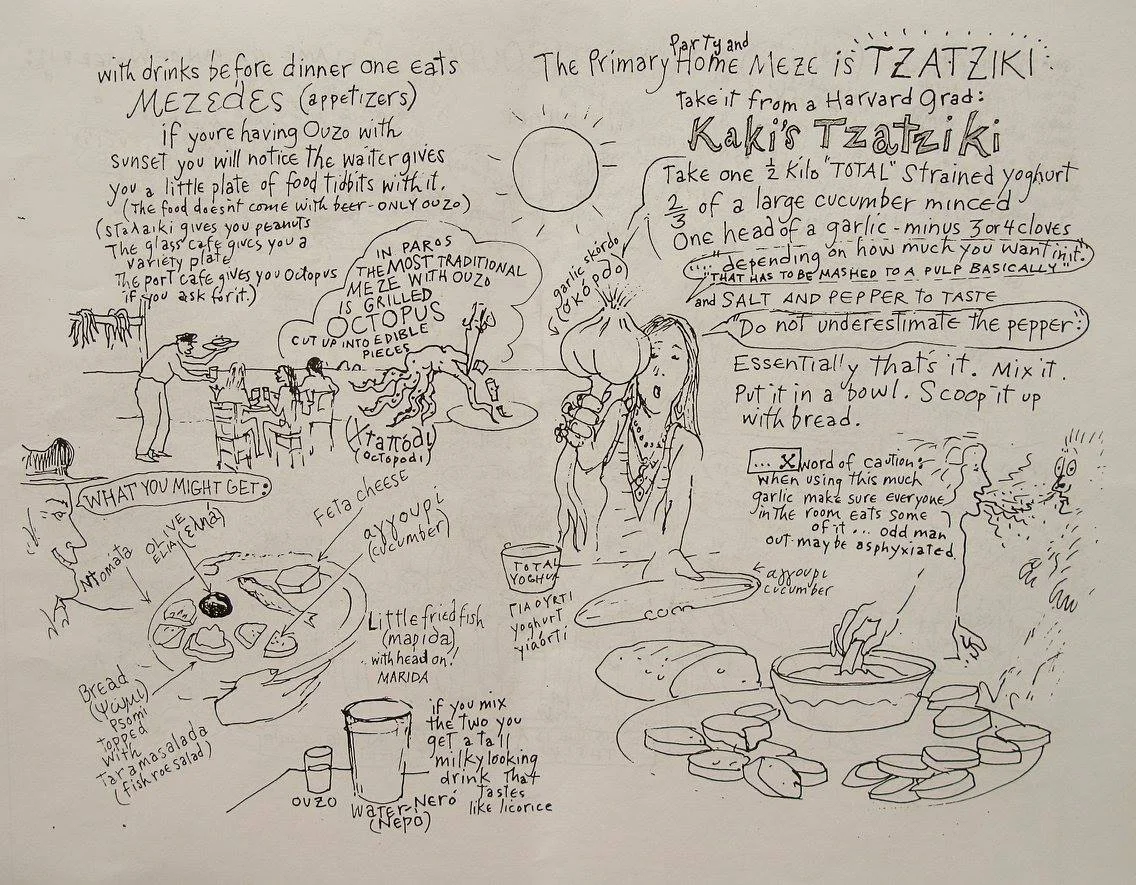 with drinks before dinner one eats
MEZEDES (appetizers)
if youre having Ouzo with
sunset you will notice the waiter gives
you a little plate of food tidbits with it.
(The food doesnt come with beer-ONLY OUZO)
(Stalaiki gives you peanuts
The glass cafe gives you a
variety plate
The port cafe gives you Octopus
if you ask for it.)
IN PAROS
THE MOST TRADITIONAL
MEZE WITH OUZO
IS GRILLED
OCTOPUS
CUT UP INTO EDIBLE
PIECES
(Χταπόδι)
(octopodi)
WHAT YOU MIGHT GET:
Ntomáta
OLIVE
ELIA
(ελιά)
Feta cheese
αγγουρι
(cucumber)
Little fried fish
(μαρίδα)
with head on!
MARIDA
Bread
(Ψωμί)
Psomi
topped
with
taramasalada
(fish roe salad)
OUZO
water-Neró
(Νερό)
if you mix
the two you
get a tall
milky looking
drink that
tastes
like licorice
The Primary Party and Home Meze is TZATZIKI
take it from a Harvard Grad:
Kaki's Tzatziki
Take one ½ kilo "TOTAL" Strained yoghurt
2/3 of a large cucumber minced
One head of a garlic - minus 3 or 4 cloves
.... depending on how much you want in it.
"THAT HAS TO BE MASHED TO A PULP BASICALLY"
and SALT AND PEPPER to TASTE
Do not underestimate the pepper:
Essentially that's it. Mix it.
Put it in a bowl. Scoop it up
with bread.
garlic skórdo
(σκόρδο)
... X word of caution:
when using this much
garlic make sure everyone
in the room eats some
of it... odd man
out-maybe asphyxiated
TOTAL
YOGHUR
ΓΙΑΟΥΡΤΙ
yoghurt
yiaórti
αγγουρι
cucumber